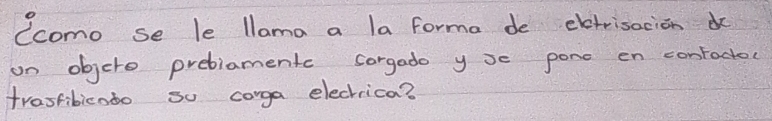 ¿como se le llama a la forma de elctrisación de
un objeto prebiamente cargado y se pone en contacto
trasfibiendo su carga electrica?